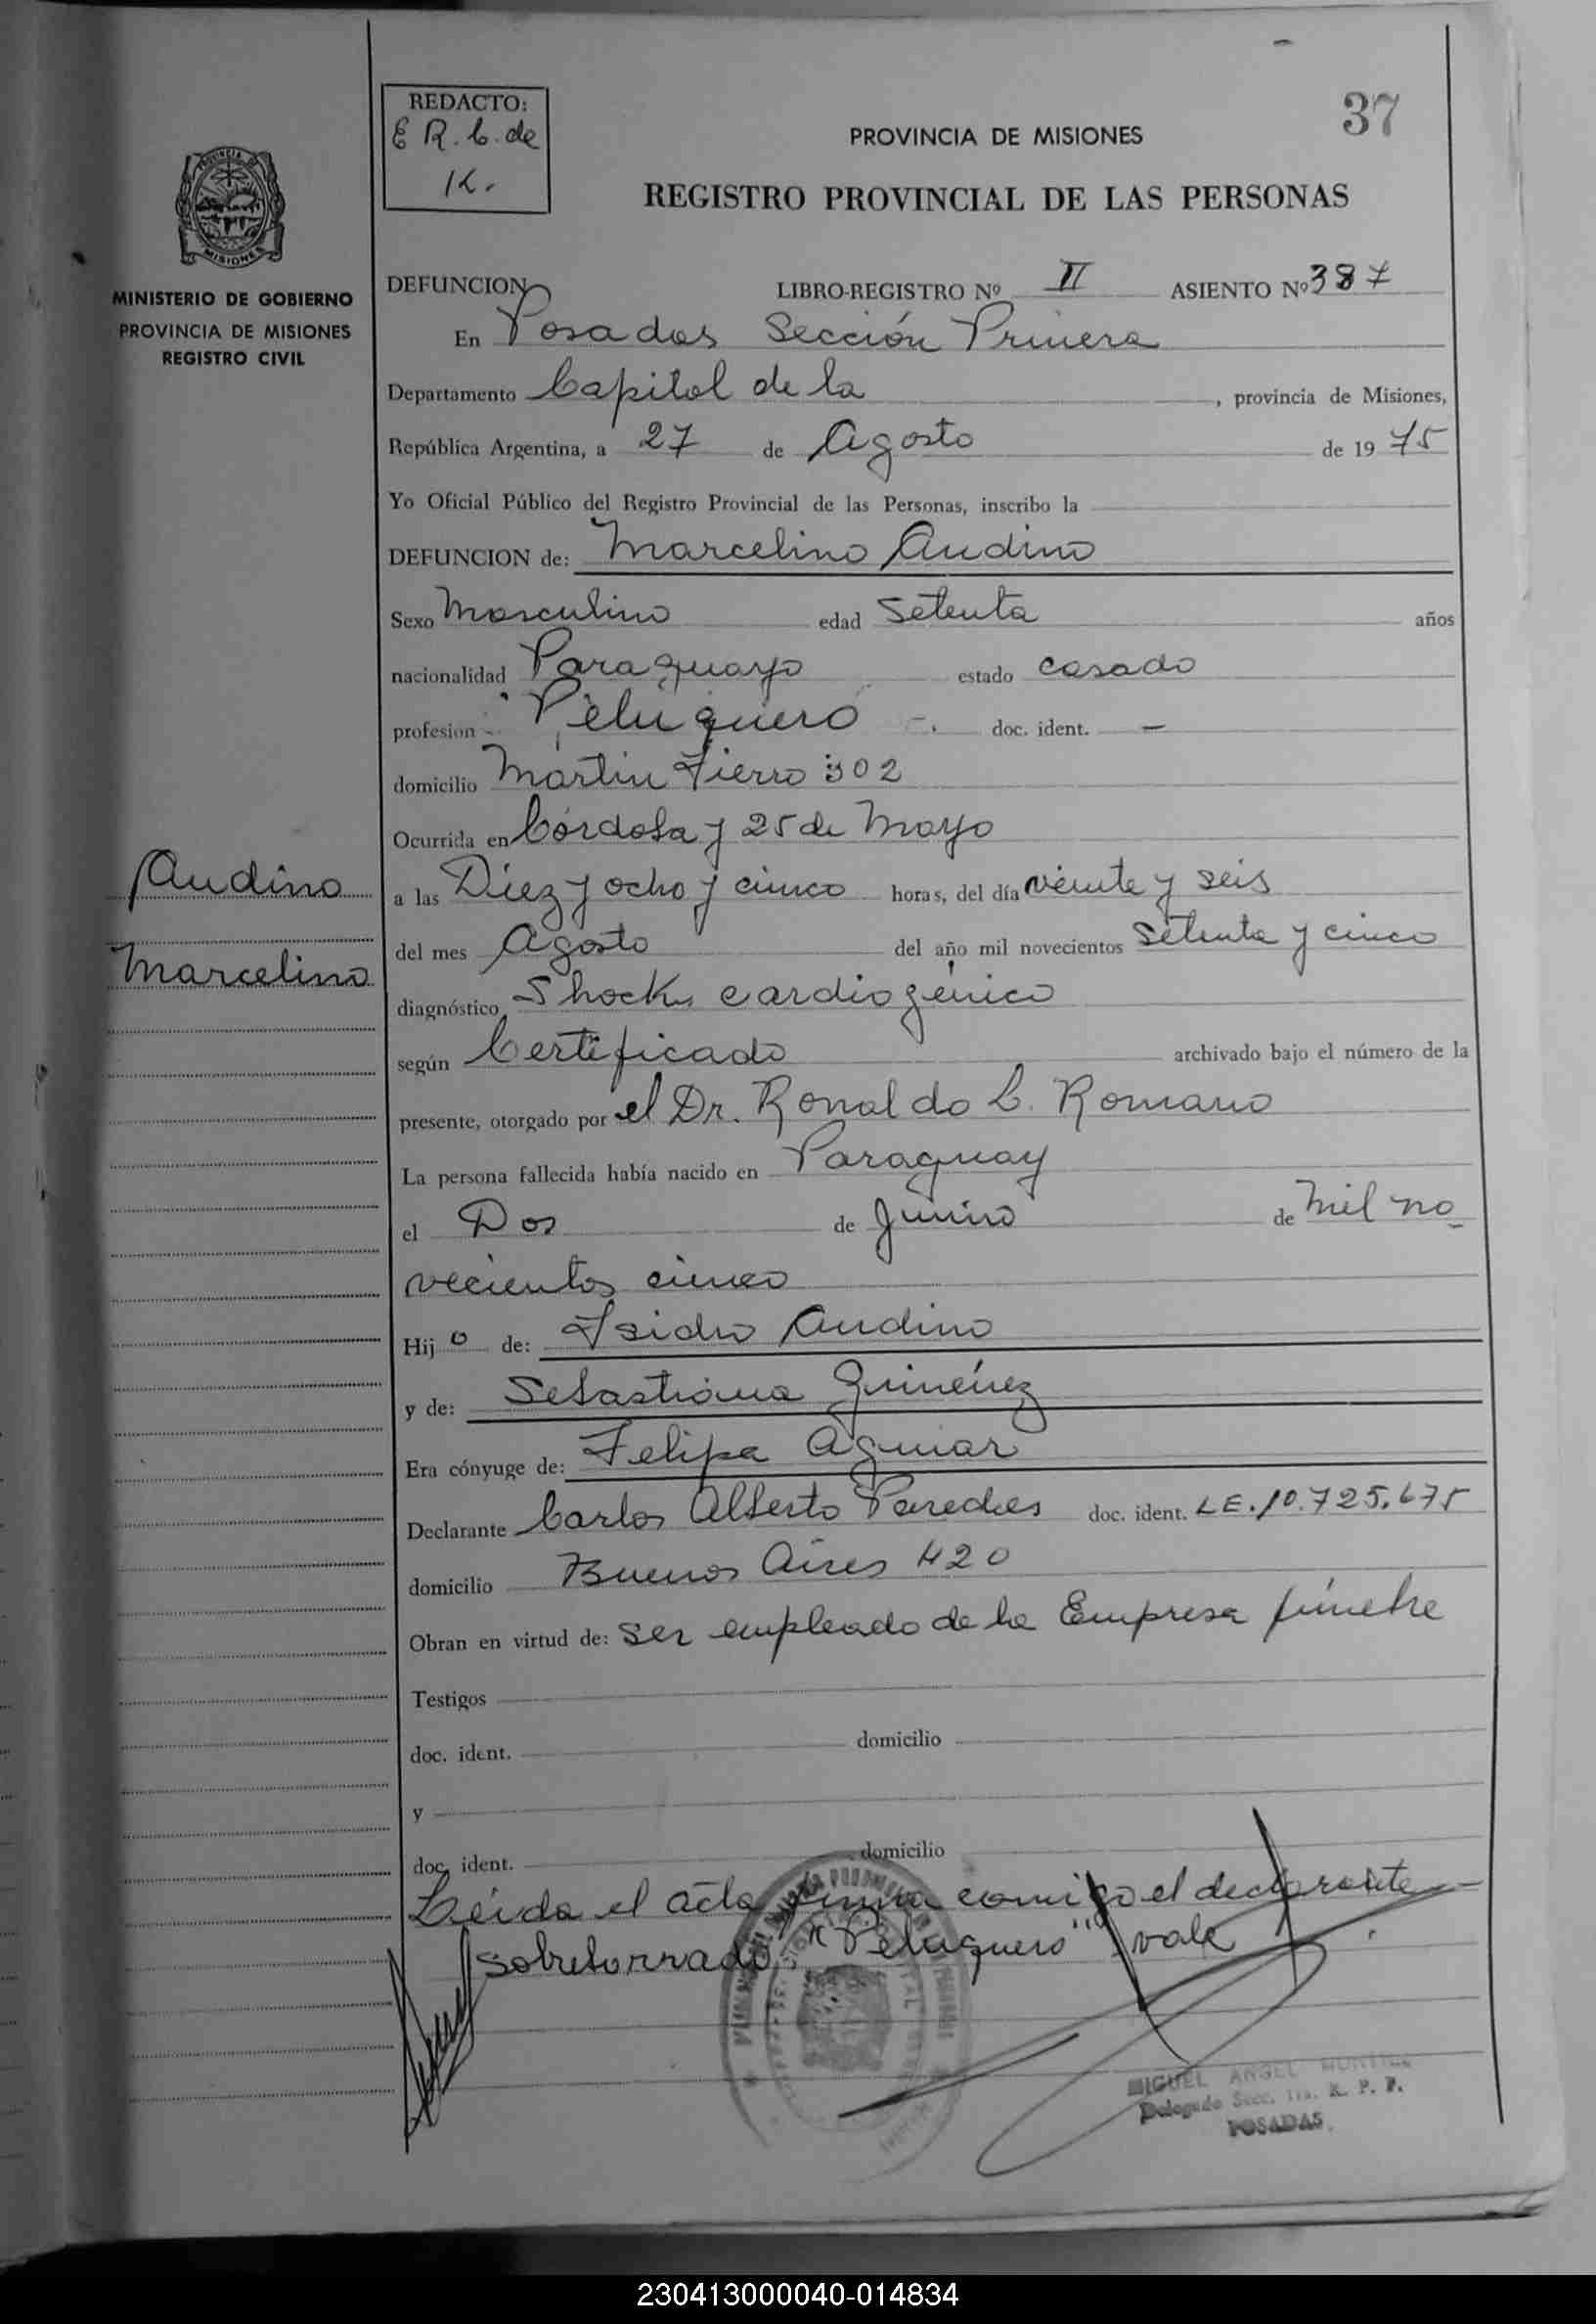 37
REDACTO:
E R. C. de
K.
PROVINCIA DE MISIONES
REGISTRO PROVINCIAL DE LAS PERSONAS
PROVINCIA DE
MISIONES
MINISTERIO DE GOBIERNO
PROVINCIA DE MISIONES
REGISTRO CIVIL
DEFUNCION
LIBRO-REGISTRO Nº II ASIENTO Nº 387
En Posadas Sección Primera
Departamento Capital de la, provincia de Misiones,
República Argentina, a 27 de Agosto de 1975
Yo Oficial Público del Registro Provincial de las Personas, inscribo la
DEFUNCION de: Marcelino Audino
Sexo Masculino edad Setenta años
nacionalidad Paraguayo estado casado
profesion Peluquero doc. ident. —
domicilio Martin Fierro 302
Ocurrida en Córdoba y 25 de Mayo
Audino
Marcelino
a las Diez y ocho y cinco horas, del día veinte y seis
del mes Agosto del año mil novecientos Setenta y cinco
diagnóstico Shock cardiogénico
según Certificado archivado bajo el número de la
presente, otorgado por el Dr. Ronaldo C. Romano
La persona fallecida había nacido en Paraguay
el Dos de Junio de mil no
vecientos cinco
Hijo de: Isidro Audino
y de: Sebastiana Giménez
Era cónyuge de: Felipa Aguiar
Declarante Carlos Alberto Paredes doc. ident. LE. 10.725.675
domicilio Buenos Aires 420
Obran en virtud de: ser empleado de la Empresa fúnebre
Testigos
doc. ident. domicilio
y
doc. ident. domicilio
Leída el acta firma conmigo el declarante
sobreborrado: "Peluquero" vale
MIGUEL ANGEL
Delegado Secc. 1ra. R. P. P.
POSADAS.
230413000040-014834